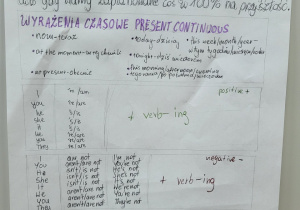 gdy mamy zaplanowane coś w 100% na przyszłość.
WYRAŻENIA CZASOWE PRESENT CONTINUOUS
•now-teraz
•today-dzisiaj
•this week/month/year-
•at the moment-w tej chwili
•tonight-dziś wieczorem
•at present-obecnie
•this morning/afternoon/evening
I 'm/am
you
he 's/is
she 's/is
it 's/is
we
you
they
positive +
+ verb-ing
I am not I'm not
You aren't/are not You're not
He isn't/is not He's not
She isn't/is not She's not
It isn't/is not It's not
We aren't/are not We're not
You aren't/are not You're not
They aren't/are not They're not
negative -
+ verb-ing